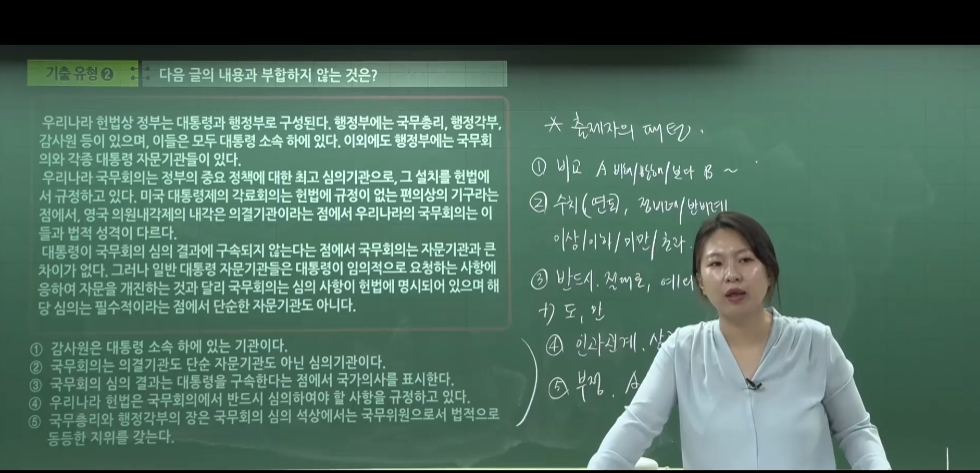 기출 유형 ❷
다음 글의 내용과 부합하지 않는 것은?
우리나라 헌법상 정부는 대통령과 행정부로 구성된다. 행정부에는 국무총리, 행정각부,
감사원 등이 있으며, 이들은 모두 대통령 소속 하에 있다. 이외에도 행정부에는 국무회
의와 각종 대통령 자문기관들이 있다.
우리나라 국무회의는 정부의 중요 정책에 대한 최고 심의기관으로, 그 설치를 헌법에
서 규정하고 있다. 미국 대통령제의 각료회의는 헌법에 규정이 없는 편의상의 기구라는
점에서, 영국 의원내각제의 내각은 의결기관이라는 점에서 우리나라의 국무회의는 이
들과 법적 성격이 다르다.
대통령이 국무회의 심의 결과에 구속되지 않는다는 점에서 국무회의는 자문기관과 큰
차이가 없다. 그러나 일반 대통령 자문기관들은 대통령이 임의적으로 요청하는 사항에
응하여 자문을 개진하는 것과 달리 국무회의는 심의 사항이 헌법에 명시되어 있으며 해
당 심의는 필수적이라는 점에서 단순한 자문기관도 아니다.
① 감사원은 대통령 소속 하에 있는 기관이다.
② 국무회의는 의결기관도 단순 자문기관도 아닌 심의기관이다.
③ 국무회의 심의 결과는 대통령을 구속한다는 점에서 국가의사를 표시한다.
④ 우리나라 헌법은 국무회의에서 반드시 심의하여야 할 사항을 규정하고 있다.
⑤ 국무총리와 행정각부의 장은 국무회의 심의 석상에서는 국무위원으로서 법적으로
동등한 지위를 갖는다.
* 출제자의 패턴.
① 비교 A 보다 B ~
② 수치(연도),
이상/이하/미만/초과
③ 반드시, 절대로,
+) 도, 만
④ 인과관계,
⑤ 부정, A